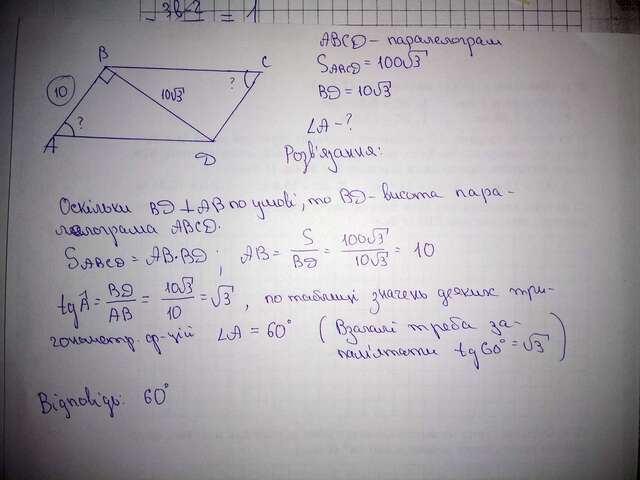 - 3в-2 = 1
ABCD - паралелограм
S ABCD = 100√3
BD = 10√3
∠A - ?
Розв'язання:
B
C
10
10√3
?
?
A
D
Оскільки BD ⊥ AB по умові, то BD - висота пара-
лелограма ABCD.
S ABCD = AB·BD; AB = S/BD = 100√3/10√3 = 10
tg Â = BD/AB = 10√3/10 = √3, по таблиці значень деяких три-
гонометр. ф-цій ∠A = 60° (Взагалі треба за-
пам'ятати tg 60° = √3)
Відповідь: 60°